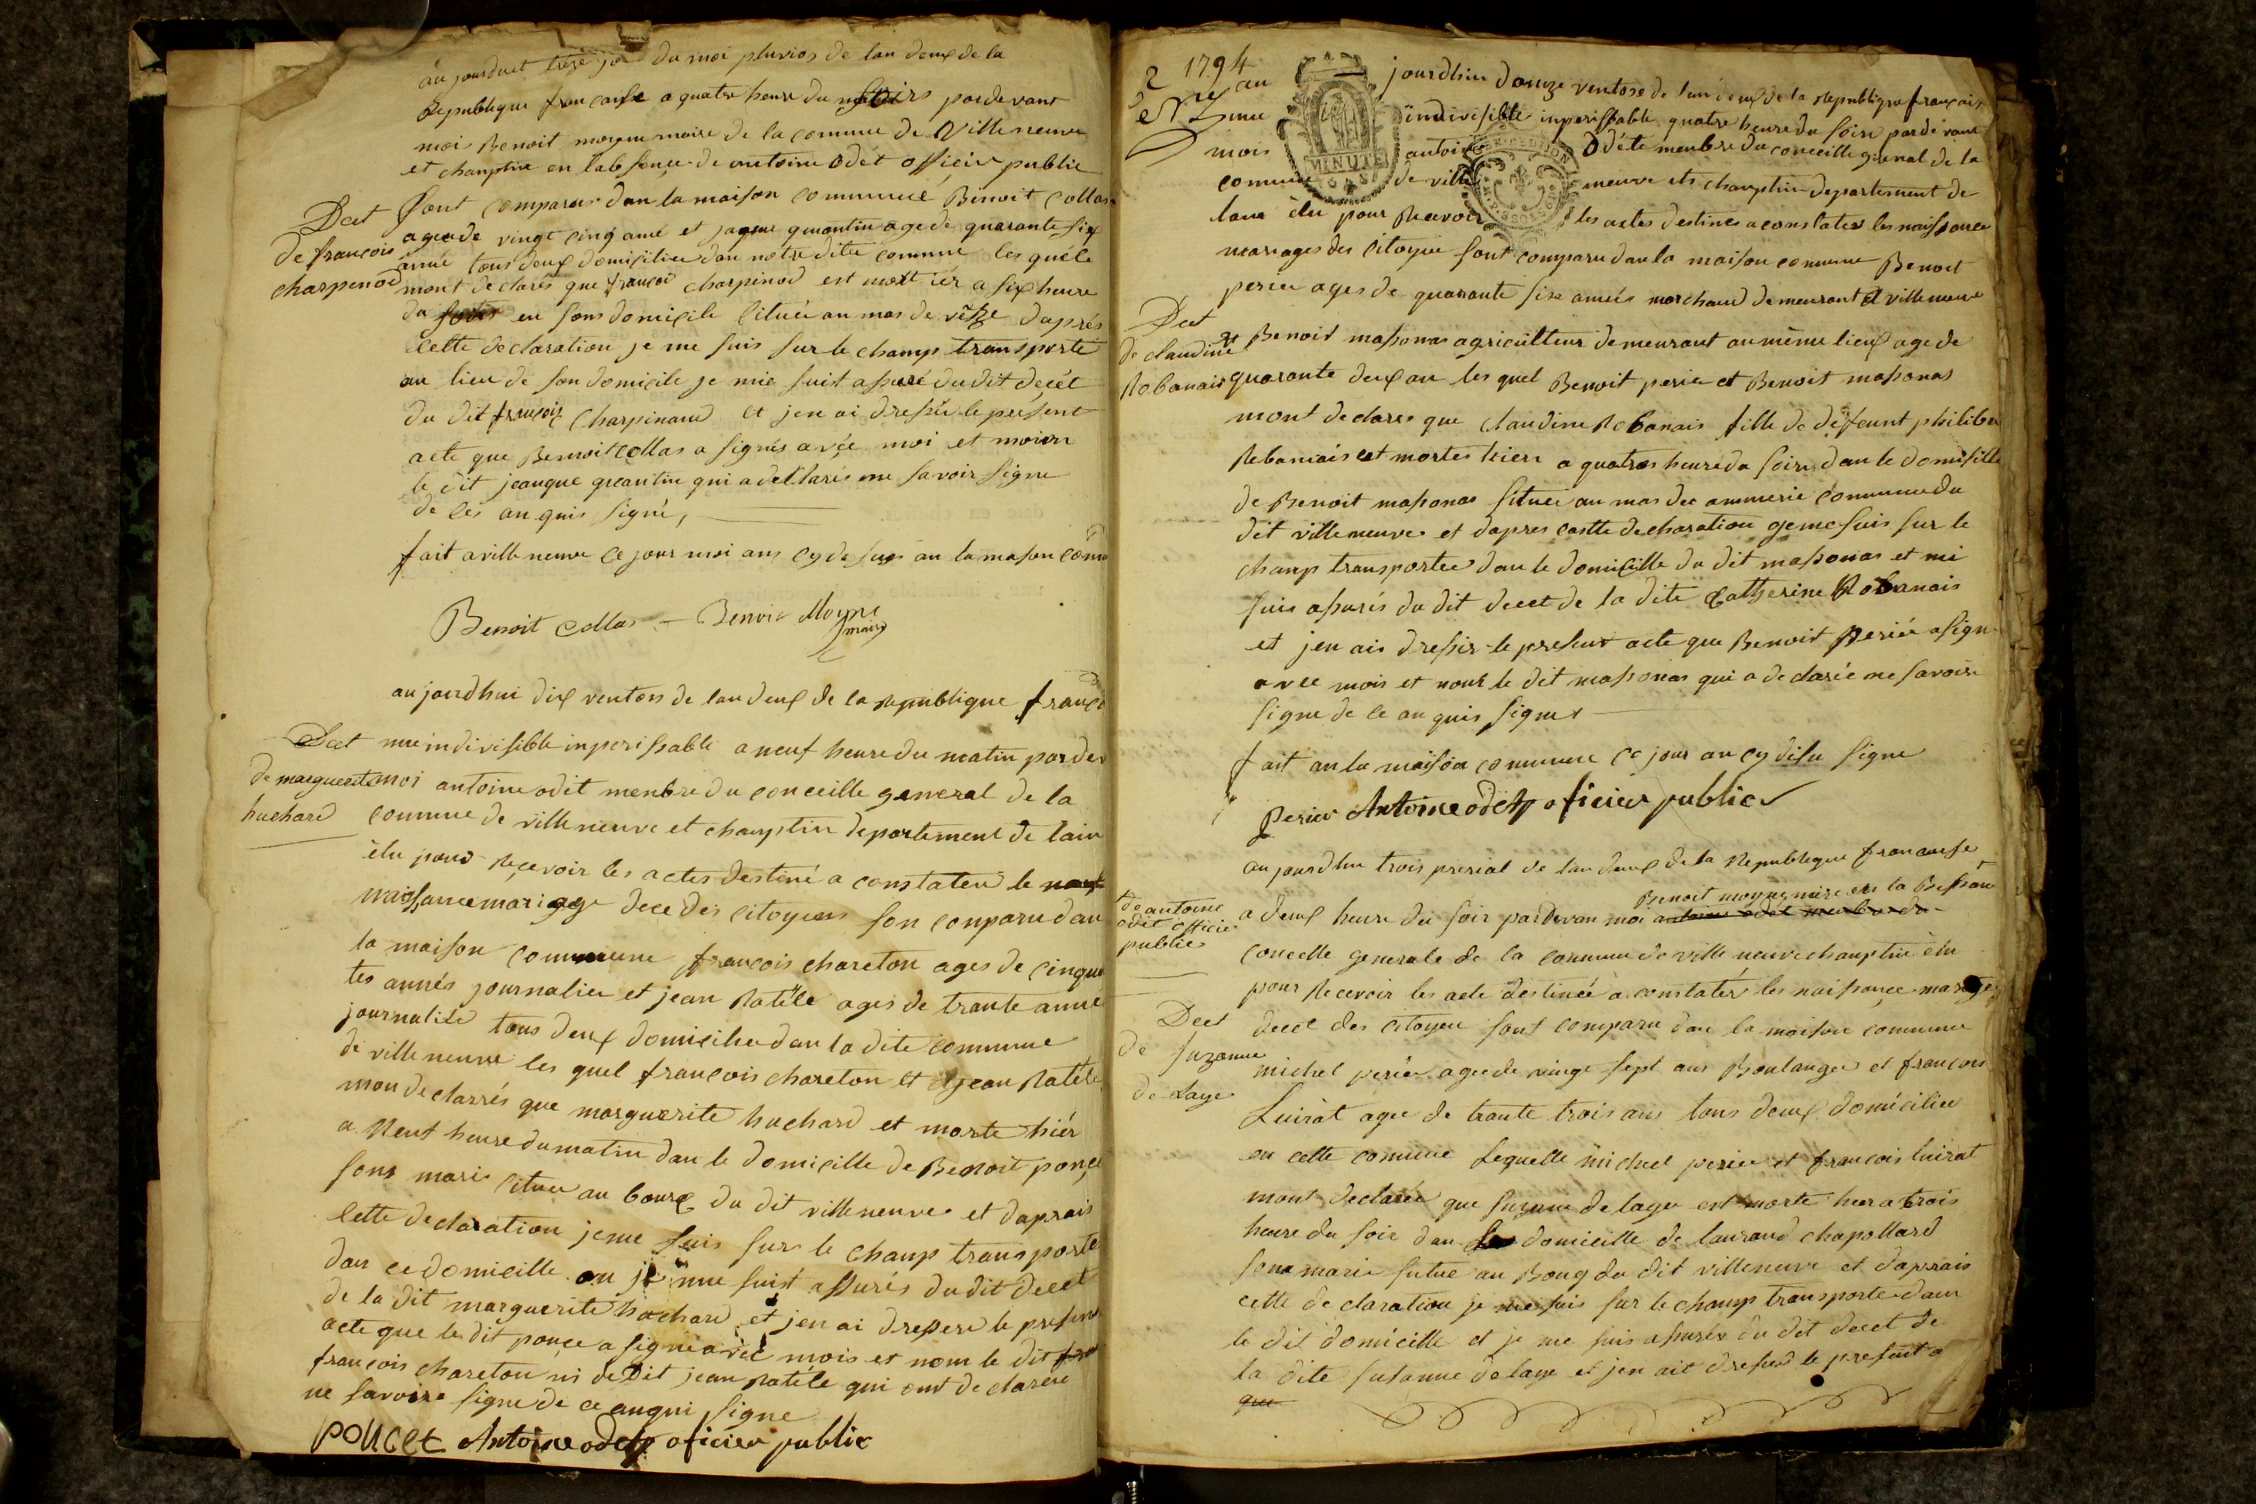 aujourduit treze jour du moi pluvios de lan deux de la
Republique francaise a quatre heure du soirs pardevant
moi Benoit moyne maire de la comune de Villeneuve
et champtin en labsence de antoine odét officier public
Sont comparus dan la maison commune Benoit Collas
Decet
de françois
charpinod
agee de vingt cinq anné et jaque quantin age de quarante six
anné tous deux domicilier dan notre dite commune les quéle
mont declarés que françoi charpinod est mort iér a six heure
du soir en sons domicile cituée au mas de daprés
cette declaration je me suis sur le champ transporté
au lieu de son domicile je mie suit assuré du dit decét
du dit françois Charpinaud et jen ai dressée le présent
acte que Benoit collas a signés avée moi et moien
le dit jeanque queantin qui a declarés ne savoir signe
de ces an quis signé,
fait a villeneuve ce jour moi ans cy desus an la mason comu
Benoit collas - Benoit Moyne
maire
aujourdhui dix ventos de lan deux de la republique franco
Decet
de marguerite
huchard
une indivisible inperissable a neuf heure du matin pardev
moi antoine odit menbre du conceille general de la
commune de villeneuve et champtin departement de lain
élu pour reçevoir les actes destiné a constater le
naissance mariage dece des citoyens son conparu dan
la maison commune françois chareton ages de cinque
tes annés journalier et jean Ratéle ages de trante anné
journaliér tous deux domicilier dan la dite commune
de villeneuve les quel françois chareton et jean Ratéle
mon declarrés que marguerite huchard et morte hiér
a Neuf heure du matin dan le domicille de Benoit ponçe
sons marie cituer au bourg du dit villeneuve et daprais
cette declaration jeme suis sur le champ transporté
dan ce domicille ou je mne suist assurés du dit decet
de la dit marguerite huchard et jen ai dressere le presens
acte que le dit ponçe a signé avéc mois et nom le dit
francois chareton ni de dit jean Ratéle qui ont declarere
ne savoire signe de ce anqui signe
poncet Antoine odet oficier public
1794
2
aujourdhui douze ventose de lan deux de la Republique français
une indivisible inperissable quatre heure du soire pardevant
mois antoine Odéte menbre du conceille genal de la
comune de villeneuve ets champtin departement de
MINUTE
EXPEDITION
lain élu pour Recevoir les actes destines a constater les naissance
mariages des citoyen sont comparu dan la maison comune Benoit
perier ages de quarante sixe anneés marchand demeurant a villeneuve
Decet
de claudine
Robanais
et Benoit massonas agriculteur demeurant au méme lieux age de
quarante deux an les quel Benoit perier et Benoit massonas
mont declares que claudine Robanais fille de défeunt philiber
Rebaniais est mortes hierr a quatres heure du soire dan le domisille
de Benoit massonas situer au mas des ammerie commune du
dit villeneuve et dapres castte decharation geme suis sur le
champ transportee dan le domicille du dit massonas et mi
suis assurés du dit decet de la dite Catherine Robanais
et jen ais dressés le presens acte que Benoit Periér a signe
avec mois et nous le dit massonas qui a declarée ne savoire
signe de ce an quis signes
fait an la maison commune ce jour an cy desu signe
perier Antoine odet oficier public
aujourdhu trois prerial de lan deux de la Republeque francaise
Benoit moyne maire en la Bessan
de antoine
odit officier
publics
a deux heure du soir pardevan moi antoine odet menbre du
concelle generale de la commune de villeneuve chamtin élu
pour Recevoir les acte destinée a constater les naissance mariages
Decet
de Suzanne
de Laye
decet des citoyen sont comparu dan la maison commune
michel perier agee de vingt sept ans Boulanger et francois
Luirat agee de trante trois ans tous deux domicilier
en cette comune lequelle michel perier et francois luirat
mont declarée que susanne de laye est morte hier a trois
heure du soir dan le domicille de laurand chapollard
sons marie situé au Boug du dit villeneuve et daprais
cette declaration je me suis sur le champ transporte dan
le dit domicille et je me suis assurér du dit decet de
la dite susanne delaye et jen ait dressed le present a
que